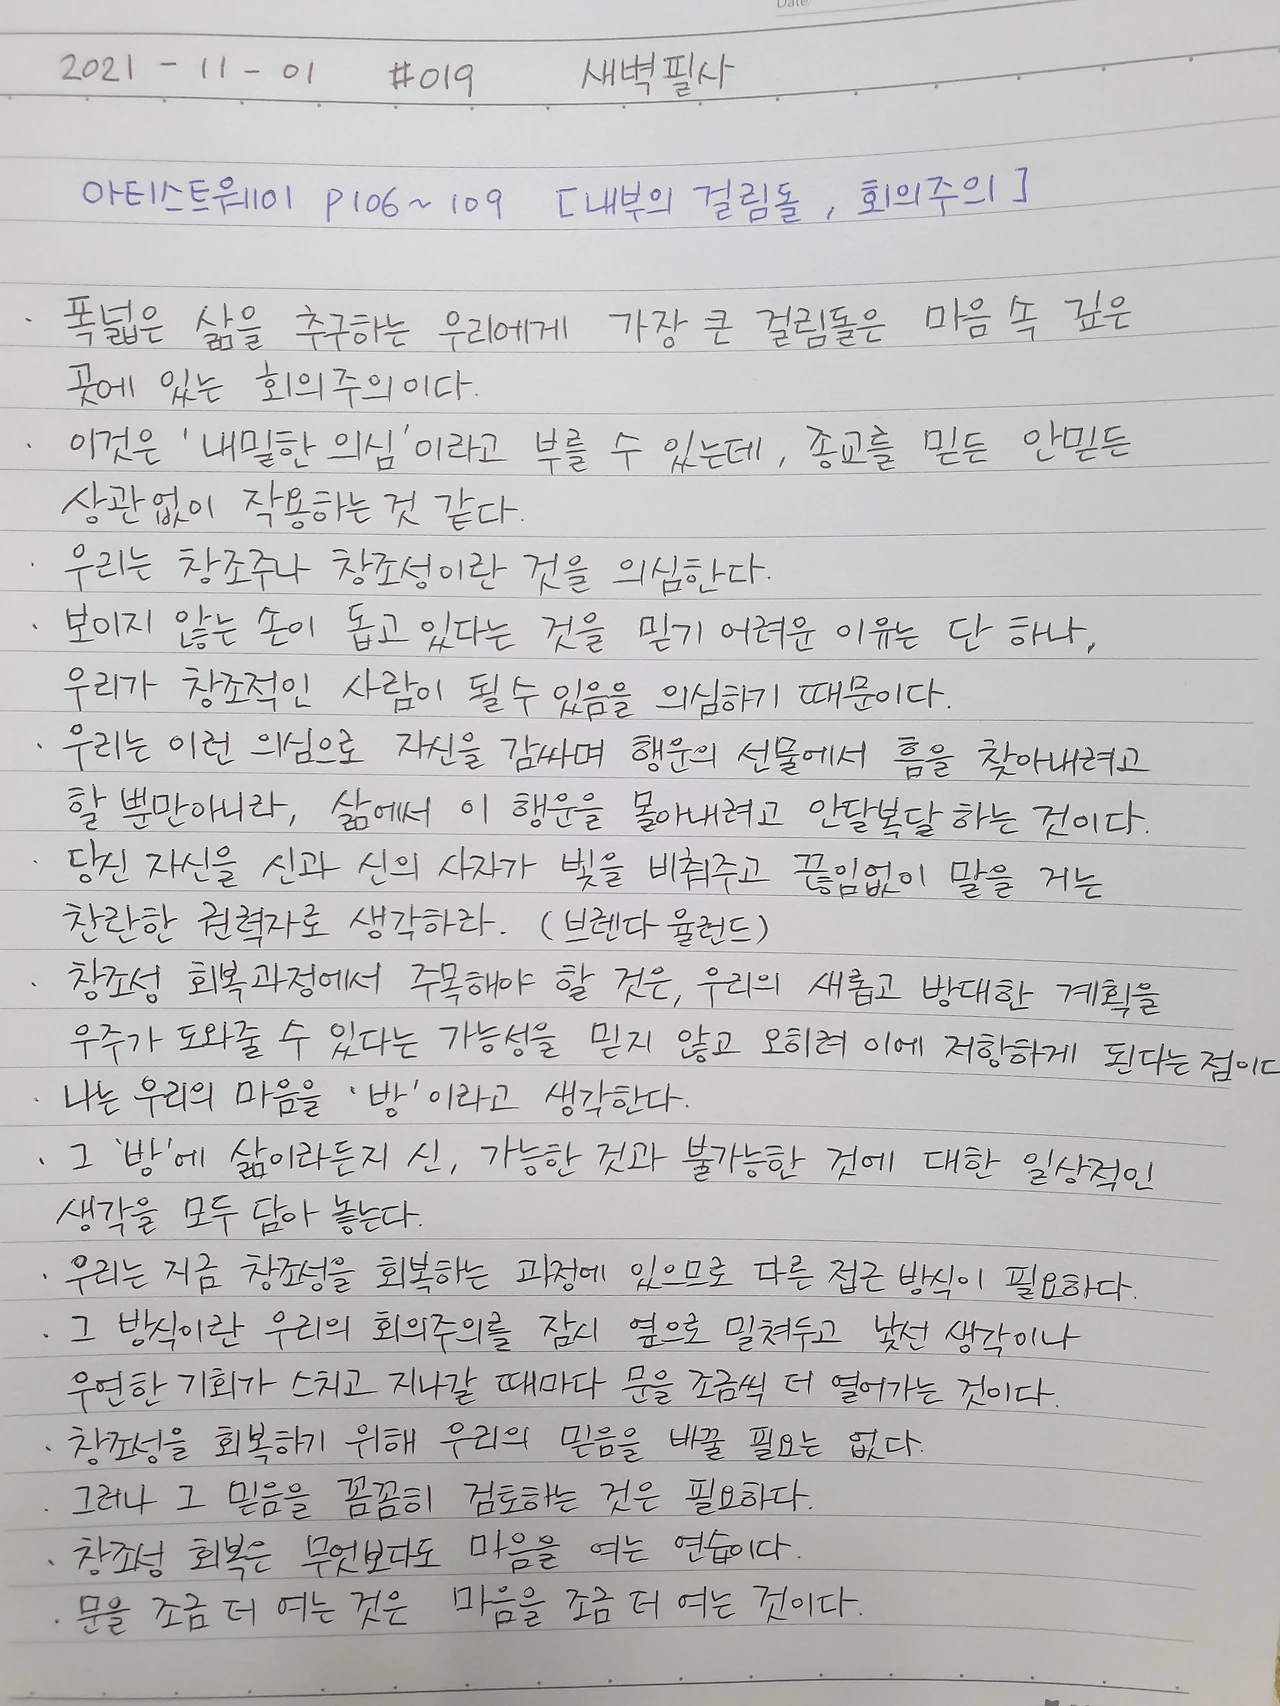 Date
2021 - 11 - 01 #019 새벽필사
아티스트웨이 P106~109 [내부의 걸림돌, 회의주의]
· 폭넓은 삶을 추구하는 우리에게 가장 큰 걸림돌은 마음 속 깊은
곳에 있는 회의주의이다.
· 이것은 '내밀한 의심'이라고 부를 수 있는데, 종교를 믿든 안믿든
상관없이 작용하는 것 같다.
· 우리는 창조주나 창조성이란 것을 의심한다.
· 보이지 않는 손이 돕고 있다는 것을 믿기 어려운 이유는 단 하나,
우리가 창조적인 사람이 될 수 있음을 의심하기 때문이다.
· 우리는 이런 의심으로 자신을 감싸며 행운의 선물에서 흠을 찾아내려고
할 뿐만아니라, 삶에서 이 행운을 몰아내려고 안달복달 하는 것이다.
· 당신 자신을 신과 신의 사자가 빛을 비춰주고 끊임없이 말을 거는
찬란한 권력자로 생각하라. (브렌다 율런드)
· 창조성 회복과정에서 주목해야 할 것은, 우리의 새롭고 방대한 계획을
우주가 도와줄 수 있다는 가능성을 믿지 않고 오히려 이에 저항하게 된다는 점이다
· 나는 우리의 마음을 '방'이라고 생각한다.
· 그 '방'에 삶이라든지 신, 가능한 것과 불가능한 것에 대한 일상적인
생각을 모두 담아 놓는다.
· 우리는 지금 창조성을 회복하는 과정에 있으므로 다른 접근 방식이 필요하다.
· 그 방식이란 우리의 회의주의를 잠시 옆으로 밀쳐두고 낯선 생각이나
우연한 기회가 스치고 지나갈 때마다 문을 조금씩 더 열어가는 것이다.
· 창조성을 회복하기 위해 우리의 믿음을 바꿀 필요는 없다.
· 그러나 그 믿음을 꼼꼼히 검토하는 것은 필요하다.
· 창조성 회복은 무엇보다도 마음을 여는 연습이다.
· 문을 조금 더 여는 것은 마음을 조금 더 여는 것이다.